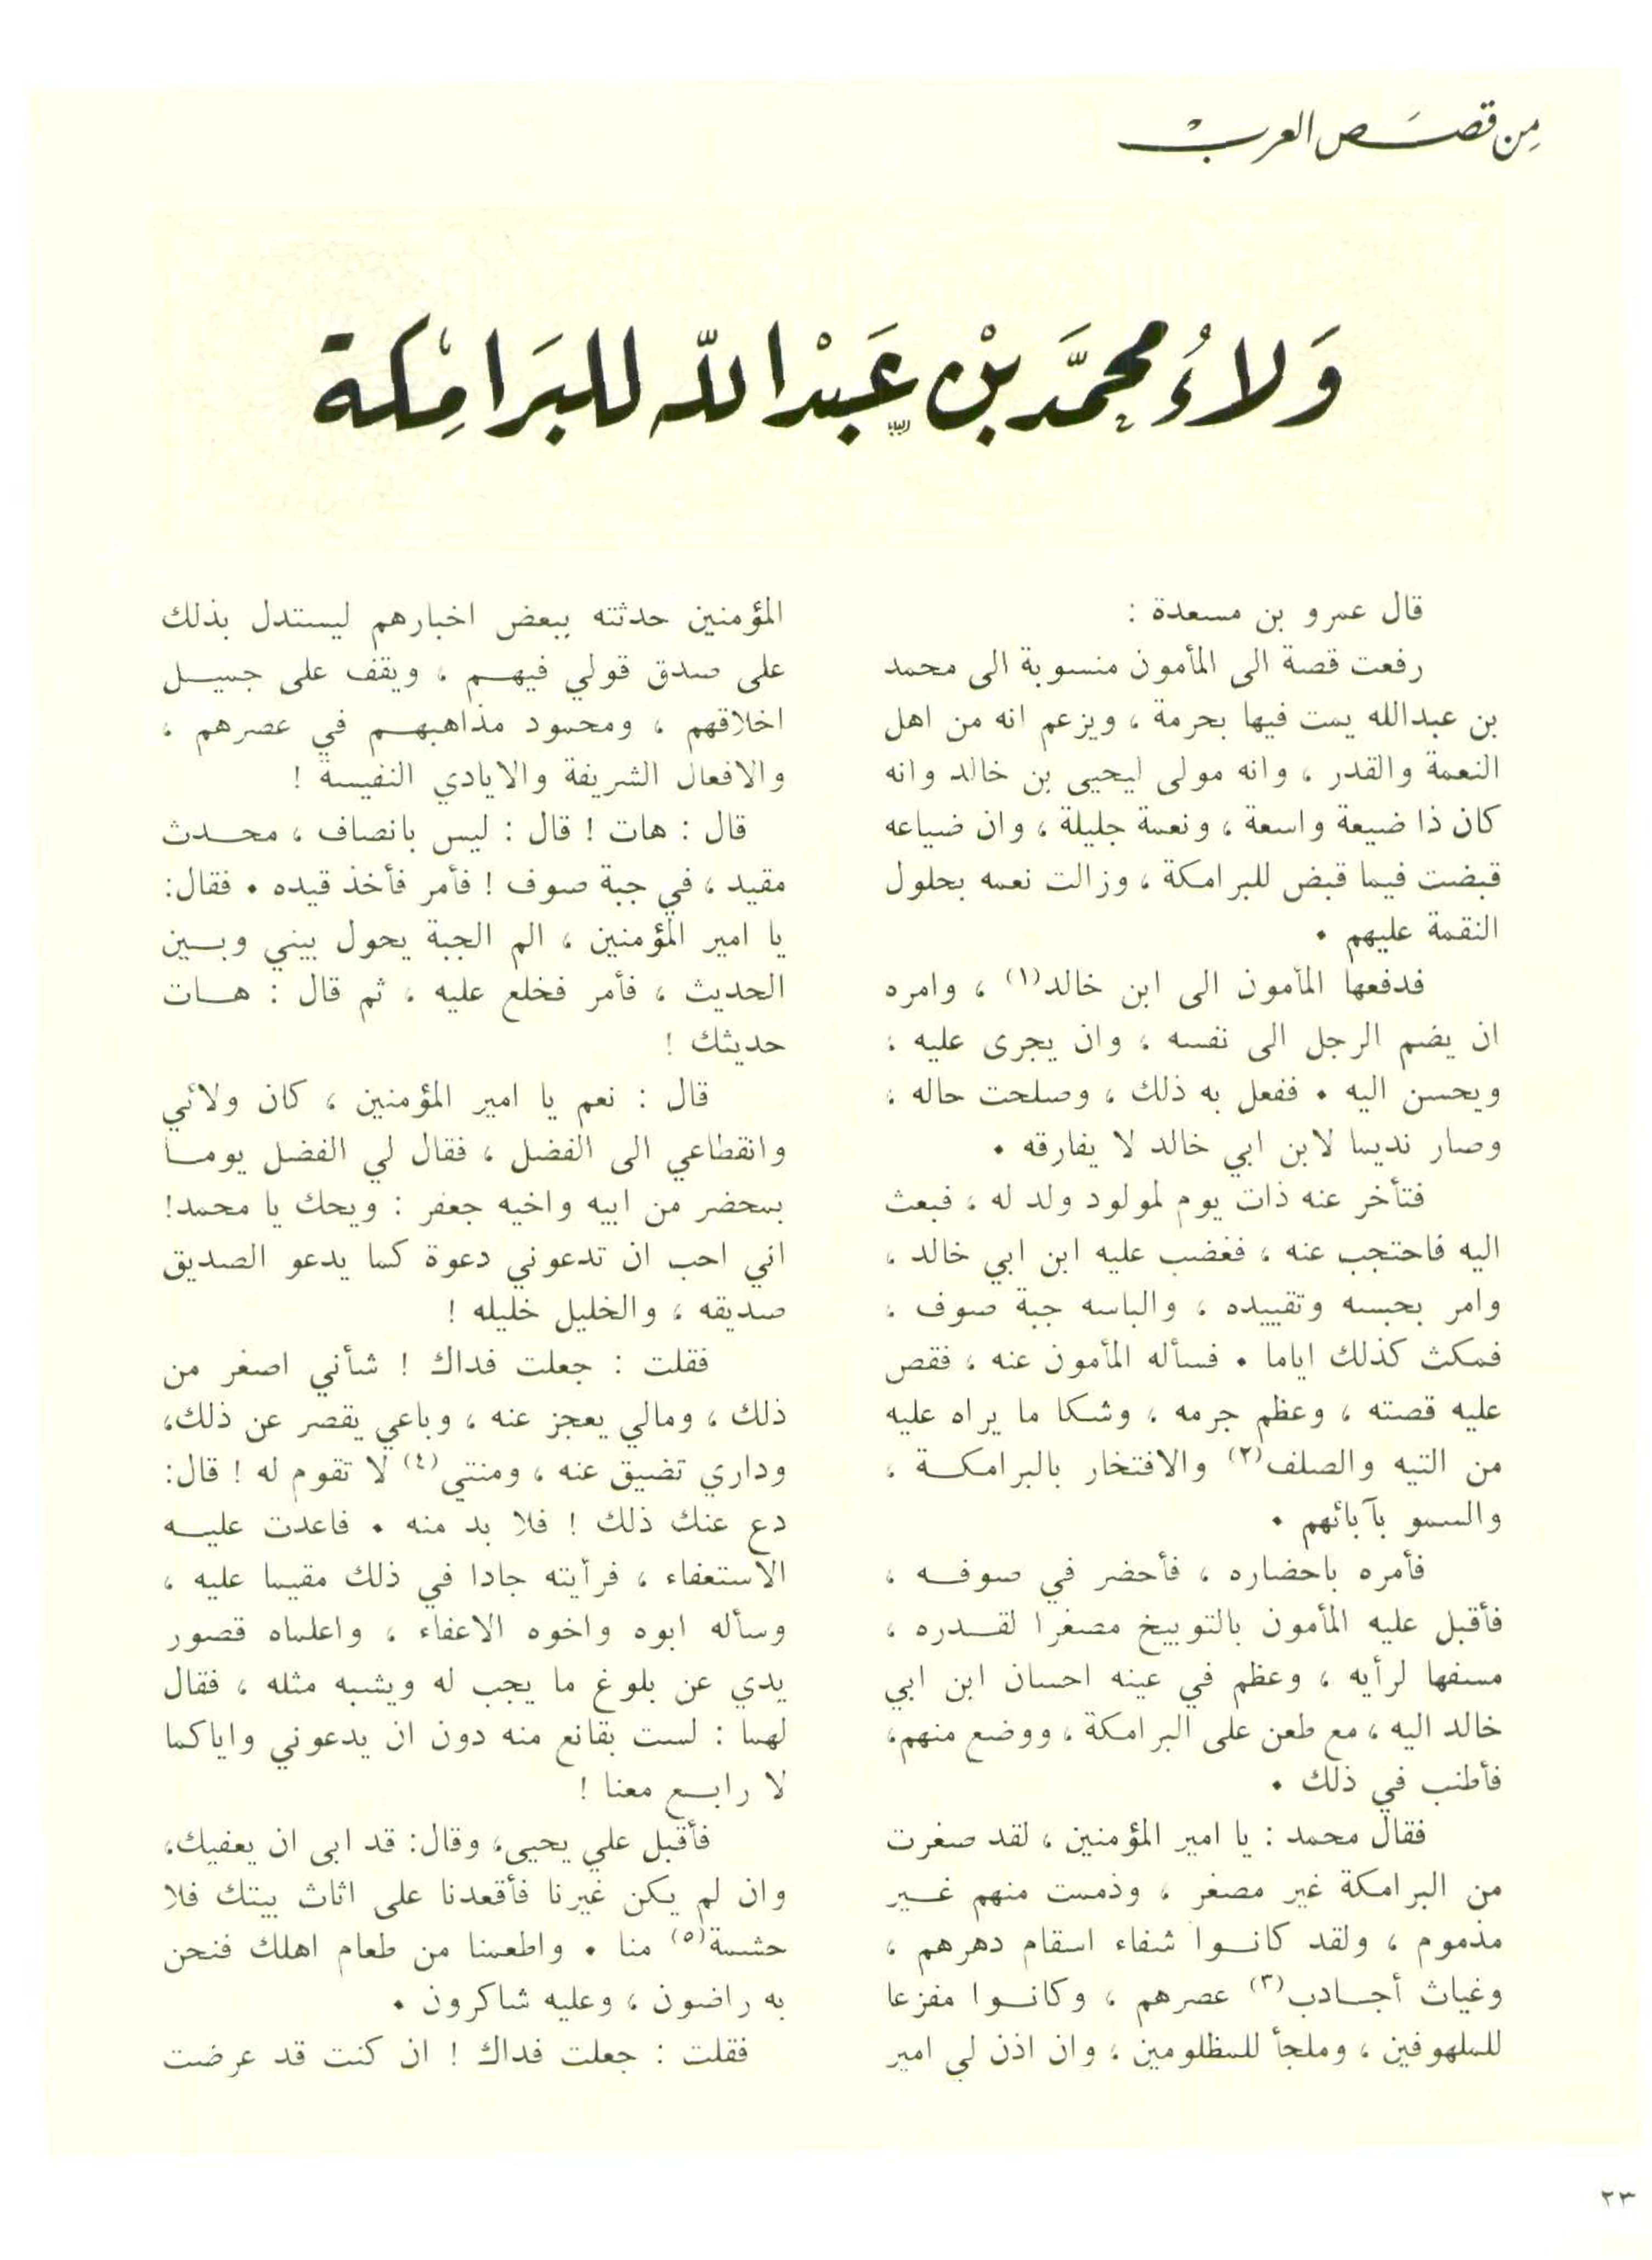 مِن قصَص العربْ
وَلاءُ محمَّد بْن عَبْد اللّه للبَرامْكِة
قال عمرو بن مسعدة :
رفعت قصة الى المأمون منسوبة الى محمد
بن عبدالله يمت فيها بحرمة ، ويزعم انه من اهل
النعمة والقدر ، وانه مولى ليحيى بن خالد وانه
كان ذا ضيعة واسعة ، ونعمة جليلة ، وان ضياعه
قبضت فيما قبض للبرامكة ، وزالت نعمه بحلول
النقمة عليهم .
فدفعها المأمون الى ابن خالد(١) ، وامره
ان يضم الرجل الى نفسه ، وان يجرى عليه ،
ويحسن اليه . ففعل به ذلك ، وصلحت حاله ،
وصار نديما لابن ابي خالد لا يفارقه .
فتأخر عنه ذات يوم لمولود ولد له ، فبعث
اليه فاحتجب عنه ، فغضب عليه ابن ابي خالد ،
وامر بحبسه وتقييده ، والباسه جبة صوف ،
فمكث كذلك اياما . فسأله المأمون عنه ، فقص
عليه قصته ، وعظم جرمه ، وشكا ما يراه عليه
من التيه والصلف(٢) والافتخار بالبرامكة ،
والسمو بآبائهم .
فأمره باحضاره ، فأحضر في صوفه ،
فأقبل عليه المأمون بالتوبيخ مصغرا لقدره ،
مسفها لرأيه ، وعظم في عينه احسان ابن ابي
خالد اليه ، مع طعن على البرامكة ، ووضع منهم،
فأطنب في ذلك .
فقال محمد : يا امير المؤمنين ، لقد صغرت
من البرامكة غير مصغر ، وذممت منهم غير
مذموم ، ولقد كانوا شفاء اسقام دهرهم ،
وغياث أجادب(٣) عصرهم ، وكانوا مفزعا
للملهوفين ، وملجأ للمظلومين ، وان اذن لي امير
المؤمنين حدثته ببعض اخبارهم ليستدل بذلك
على صدق قولي فيهم ، ويقف على جميل
اخلاقهم ، ومحمود مذاهبهم في عصرهم ،
والافعال الشريفة والايادي النفيسة !
قال : هات ! قال : ليس بانصاف ، محدث
مقيد ، في جبة صوف ! فأمر فأخذ قيده . فقال:
يا امير المؤمنين ، الم الجبة يحول بيني وبين
الحديث ، فأمر فخلع عليه ، ثم قال : هات
حديثك !
قال : نعم يا امير المؤمنين ، كان ولائي
وانقطاعي الى الفضل ، فقال لي الفضل يوما
بمحضر من ابيه واخيه جعفر : ويحك يا محمد!
اني احب ان تدعوني دعوة كما يدعو الصديق
صديقه ، والخليل خليله !
فقلت : جعلت فداك ! شأني اصغر من
ذلك ، ومالي يعجز عنه ، وباعي يقصر عن ذلك،
وداري تضيق عنه ، ومنتي(٤) لا تقوم له ! قال:
دع عنك ذلك ! فلا بد منه . فاعدت عليه
الاستعفاء ، فرأيته جادا في ذلك مقيما عليه ،
وسأله ابوه واخوه الاعفاء ، واعلماه قصور
يدي عن بلوغ ما يجب له ويشبه مثله ، فقال
لهما : لست بقانع منه دون ان يدعوني واياكما
لا رابع معنا !
فأقبل علي يحيى، وقال: قد ابى ان يعفيك،
وان لم يكن غيرنا فأقعدنا على اثاث بيتك فلا
حشمة(٥) منا . واطعمنا من طعام اهلك فنحن
به راضون ، وعليه شاكرون .
فقلت : جعلت فداك ! ان كنت قد عرضت
٢٣